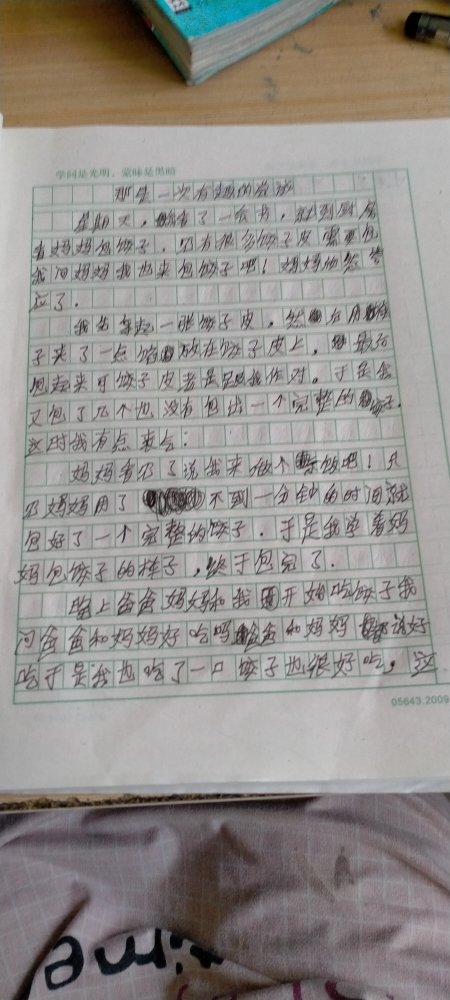 学问是光明，蒙昧是黑暗
那是一次有趣的
星期天，看了一会书，就到厨房
看妈妈包饺子，只有很多饺子皮需要包
我问妈妈我也来包饺子吧！妈妈
应了。
我先拿起一张饺子皮，然后用
子夹了一点馅放在饺子皮上，最后
包起来可饺子皮老是跟我作对。于是我
又包了几个也没有包出一个完整的饺子.
这时我有点
妈妈看见了说我来做个吧！只
见妈妈用了不到一分钟的时间就
包好了一个完整的饺子.于是我学着妈
妈包饺子的样子，终于包完了.
晚上爸爸妈妈和我开始吃饺子我
问爸爸和妈妈好吃吗爸爸和妈妈都说好
吃于是我也吃了一口饺子也很好吃，这
05643.2009
time